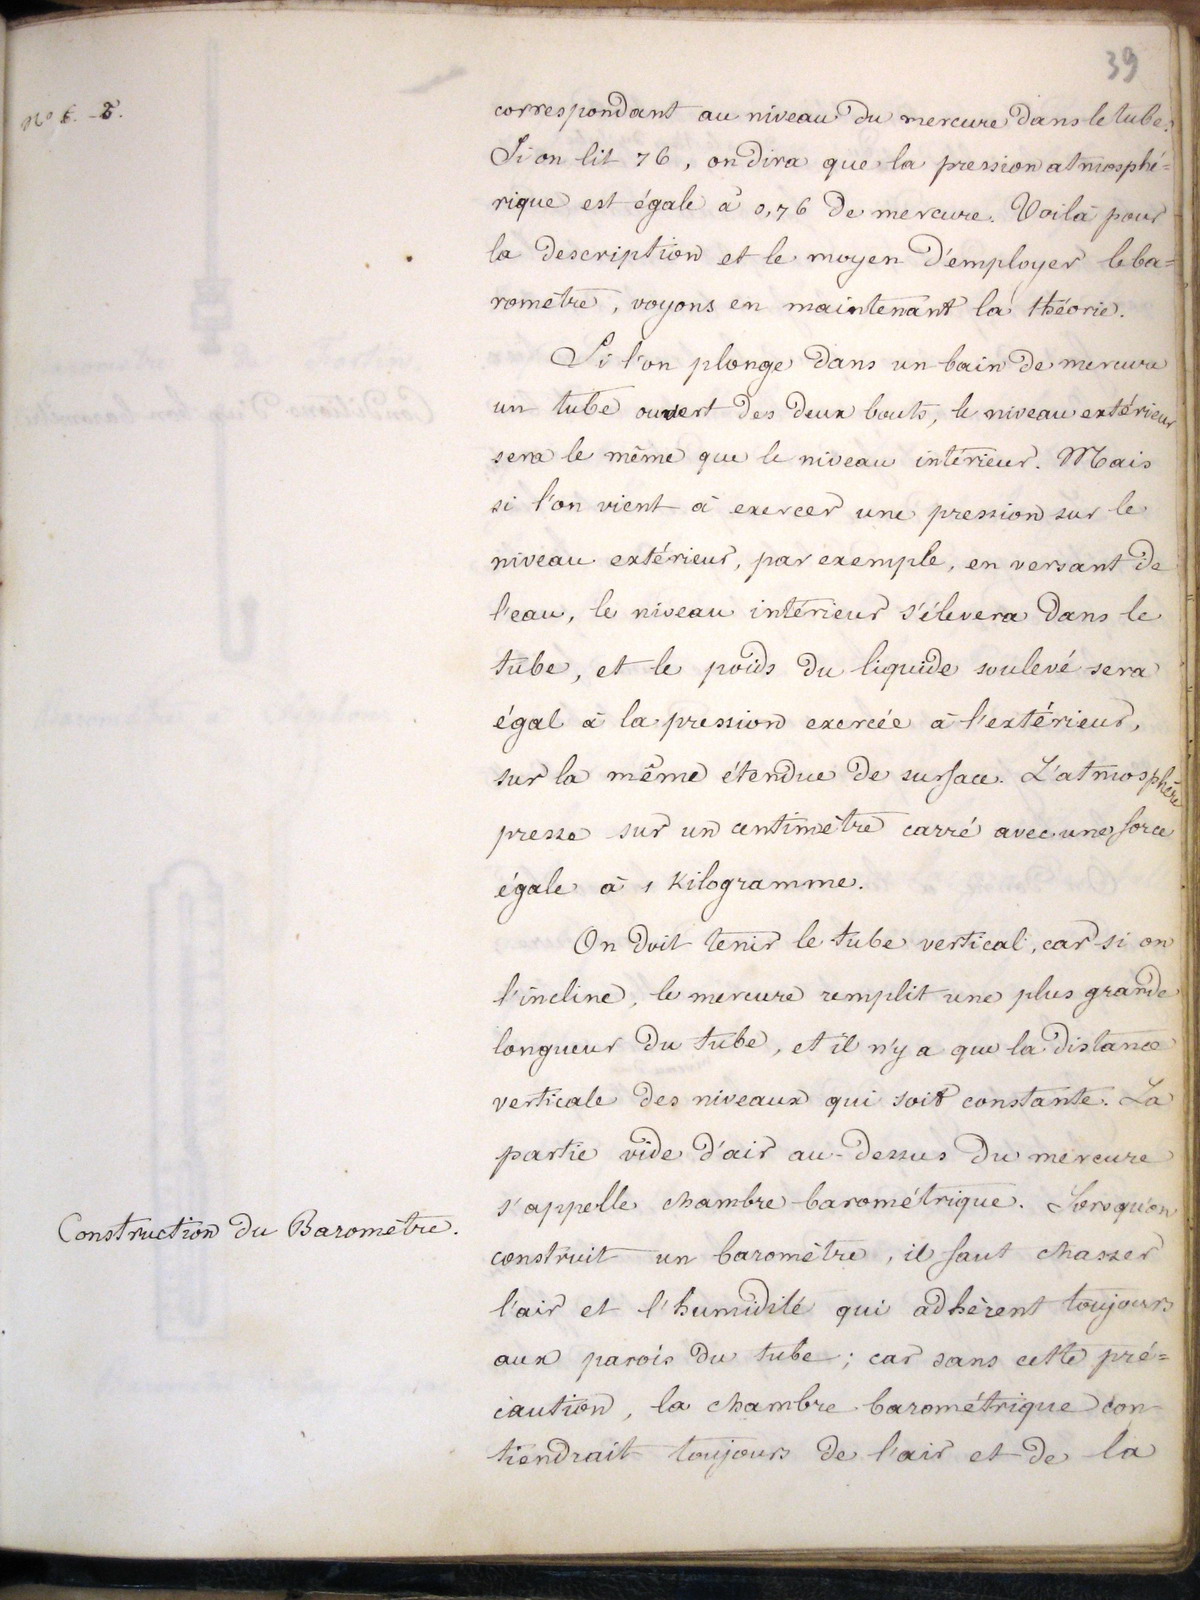 39
correspondant au niveau du mercure dans le tube.
Si on lit 76, on dira que la pression atmosphé=
rique est égale à 0,76 de mercure. Voilà pour
la description et le moyen d'employer le ba=
romètre, voyons en maintenant la théorie.
Si l'on plonge dans un bain de mercure
un tube ouvert des deux bouts, le niveau extérieur
sera le même que le niveau intérieur. Mais
si l'on vient à exercer une pression sur le
niveau extérieur, par exemple, en versant de
l'eau, le niveau intérieur s'élevera dans le
tube, et le poids du liquide soulevé sera
égal à la pression exercée à l'extérieur,
sur la même étendue de surface. L'atmosphère
presse sur un centimètre carré avec une force
égale à 1 Kilogramme.
On doit tenir le tube vertical, car si on
l'incline, le mercure remplit une plus grande
longueur du tube, et il n'y a que la distance
verticale des niveaux qui soit constante. La
partie vide d'air au-dessus du mercure
s'appelle chambre barométrique. Lorsqu'on
Construction du Baromètre.
construit un baromètre, il faut chasser
l'air et l'humidité qui adhèrent toujours
aux parois du tube; car sans cette pré=
caution, la chambre barométrique con-
tiendrait toujours de l'air et de la